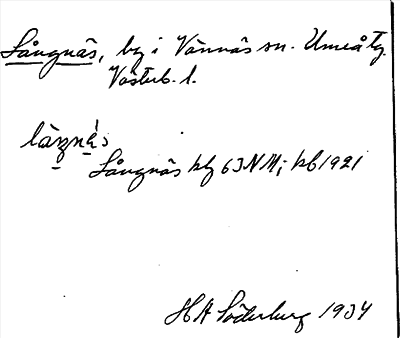 Långnäs, by i Vännäs sn. Umeå tg.
Västerb. l.
làŋnä̀s
Långnäs kbl 63 NM; kb 1921
H A Söderberg 1934